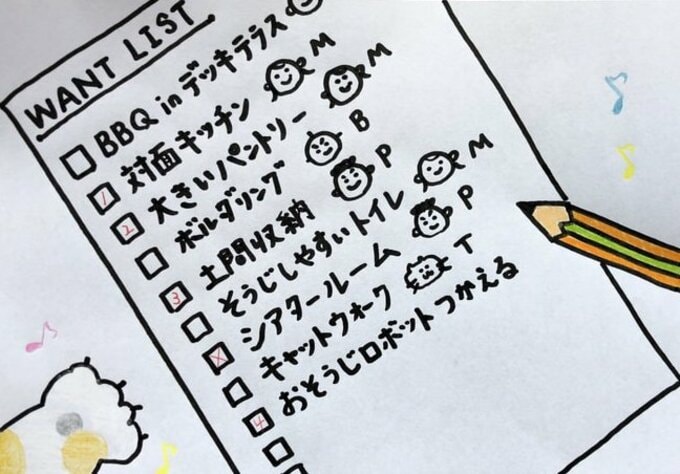 WANT LIST
BBQ in デッキテラス
1 対面キッチン M
2 大きいパントリー M
ボルダリング B
3 土間収納 P
そうじしやすいトイレ M
X シアタールーム P
キャットウォーク T
4 おそうじロボットつかえる